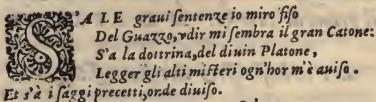 SALE graui sentenze io miro fiso
Del Guazzo, vdir mi sembra il gran Catone:
S'a la dottrina, del diuin Platone,
Legger gli alti misteri ogn'hor m'è auiso.
Et s'à i saggi precetti, onde diuiso.